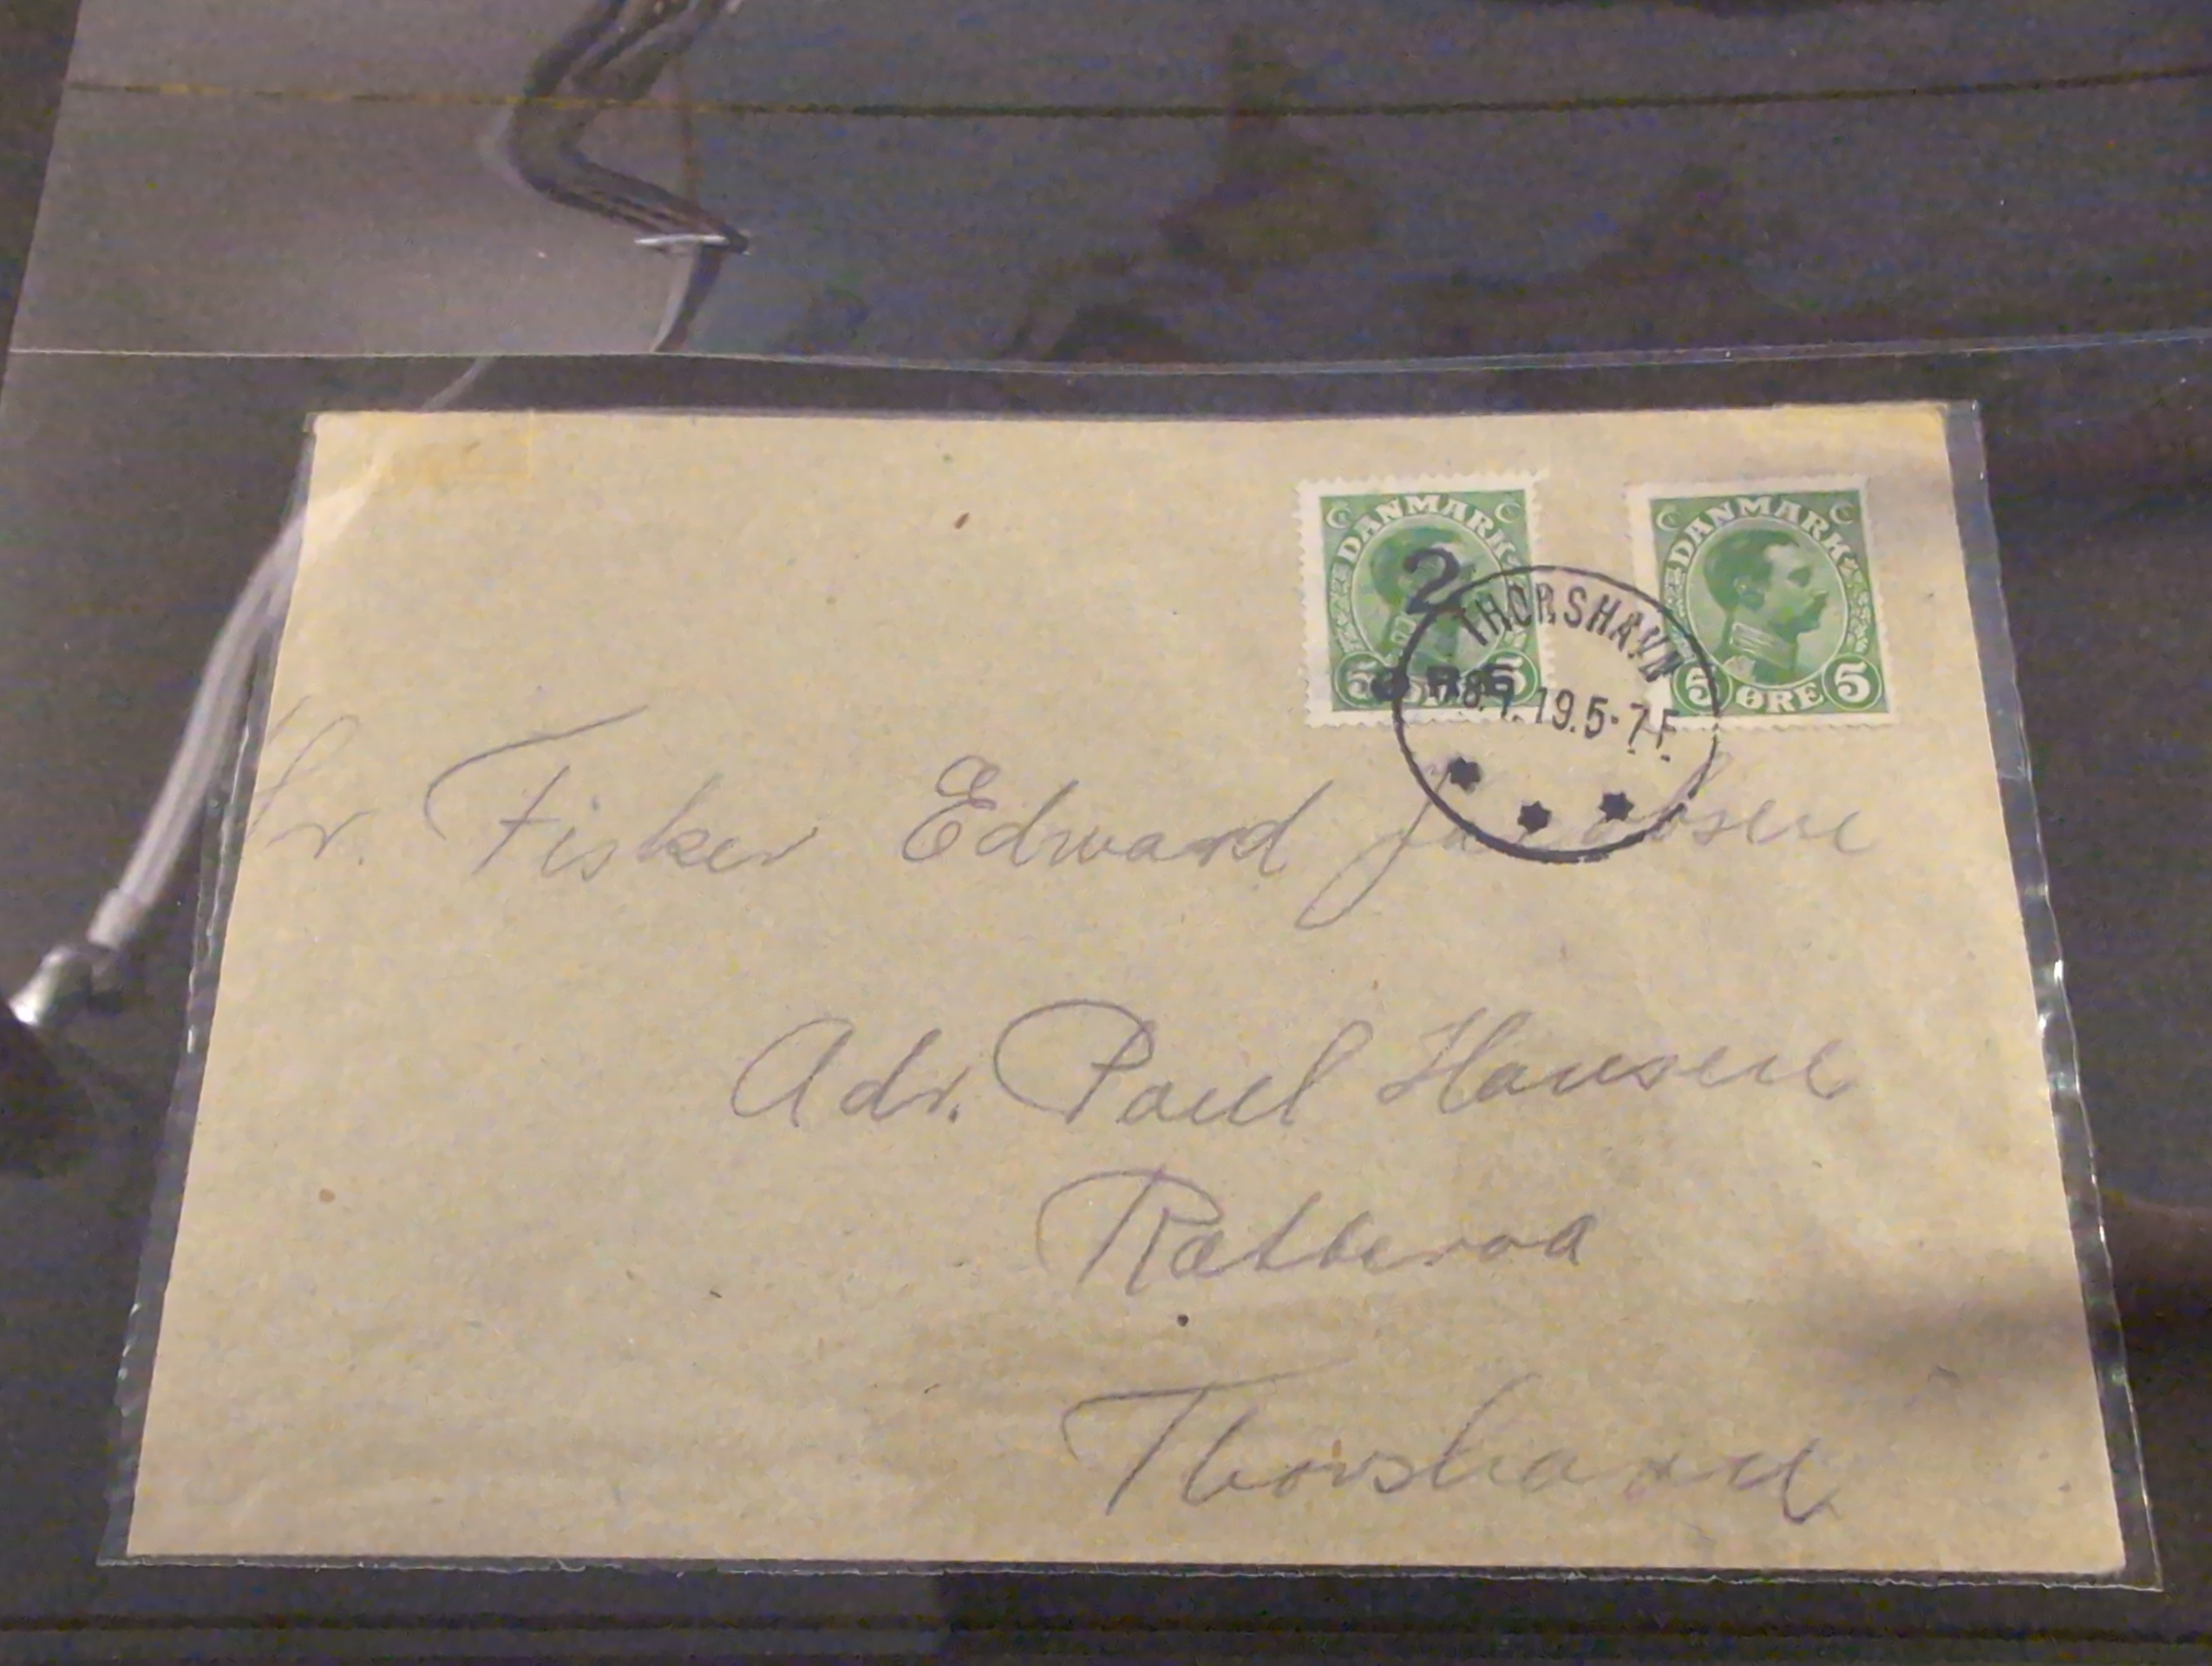 DANMARK
2 ØRE
5 5
DANMARK
5 ØRE 5
THORSHAVN
19.5-7 F.
Hr. Fisker Edward Jacobsen
Adr. Poul Hansen
Thorshavn